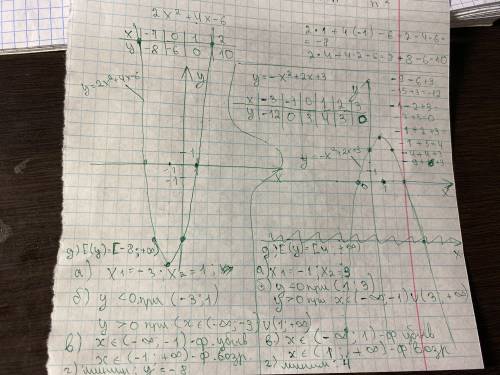 2x²+4x-6
x -1 0 1 2
y -8 -6 0 10
2·1+4·(-1)-6=2-4-6=
-8
2·4+4·2-6=8+8-6=10
y=2x²+4x-6
y
1
-1
-1
1
y=-x²+2x+3
x -3 -1 0 1 2 3
y -12 0 3 4 3 0
-9-6+3
-15+3=-12
-1-2+3=
-3+3=0
-1+2+3
1+3=4
-4+4+3
-9+6+3
y=-x²+2x+3
y
x
x
x
д) E(y)=[-8;+∞)
а) x1=-3; x2=1;
б) y<0 при (-3;1)
y>0 при (x∈(-∞;-3)∪(1;+∞)
в) x∈(-∞;-1)-ф.убыв
x∈(-1;+∞)-ф.возр.
г) миним: y=-8
д) E(y)=[4;+∞)
а) x1=-1; x2=3
б) y<0 при (1;3)
y>0 при x∈(-∞;-1)∪(3;+∞)
в) x∈(-∞;1)-ф.убыв
x∈(1;+∞)-ф.возр.
г) миним: 4